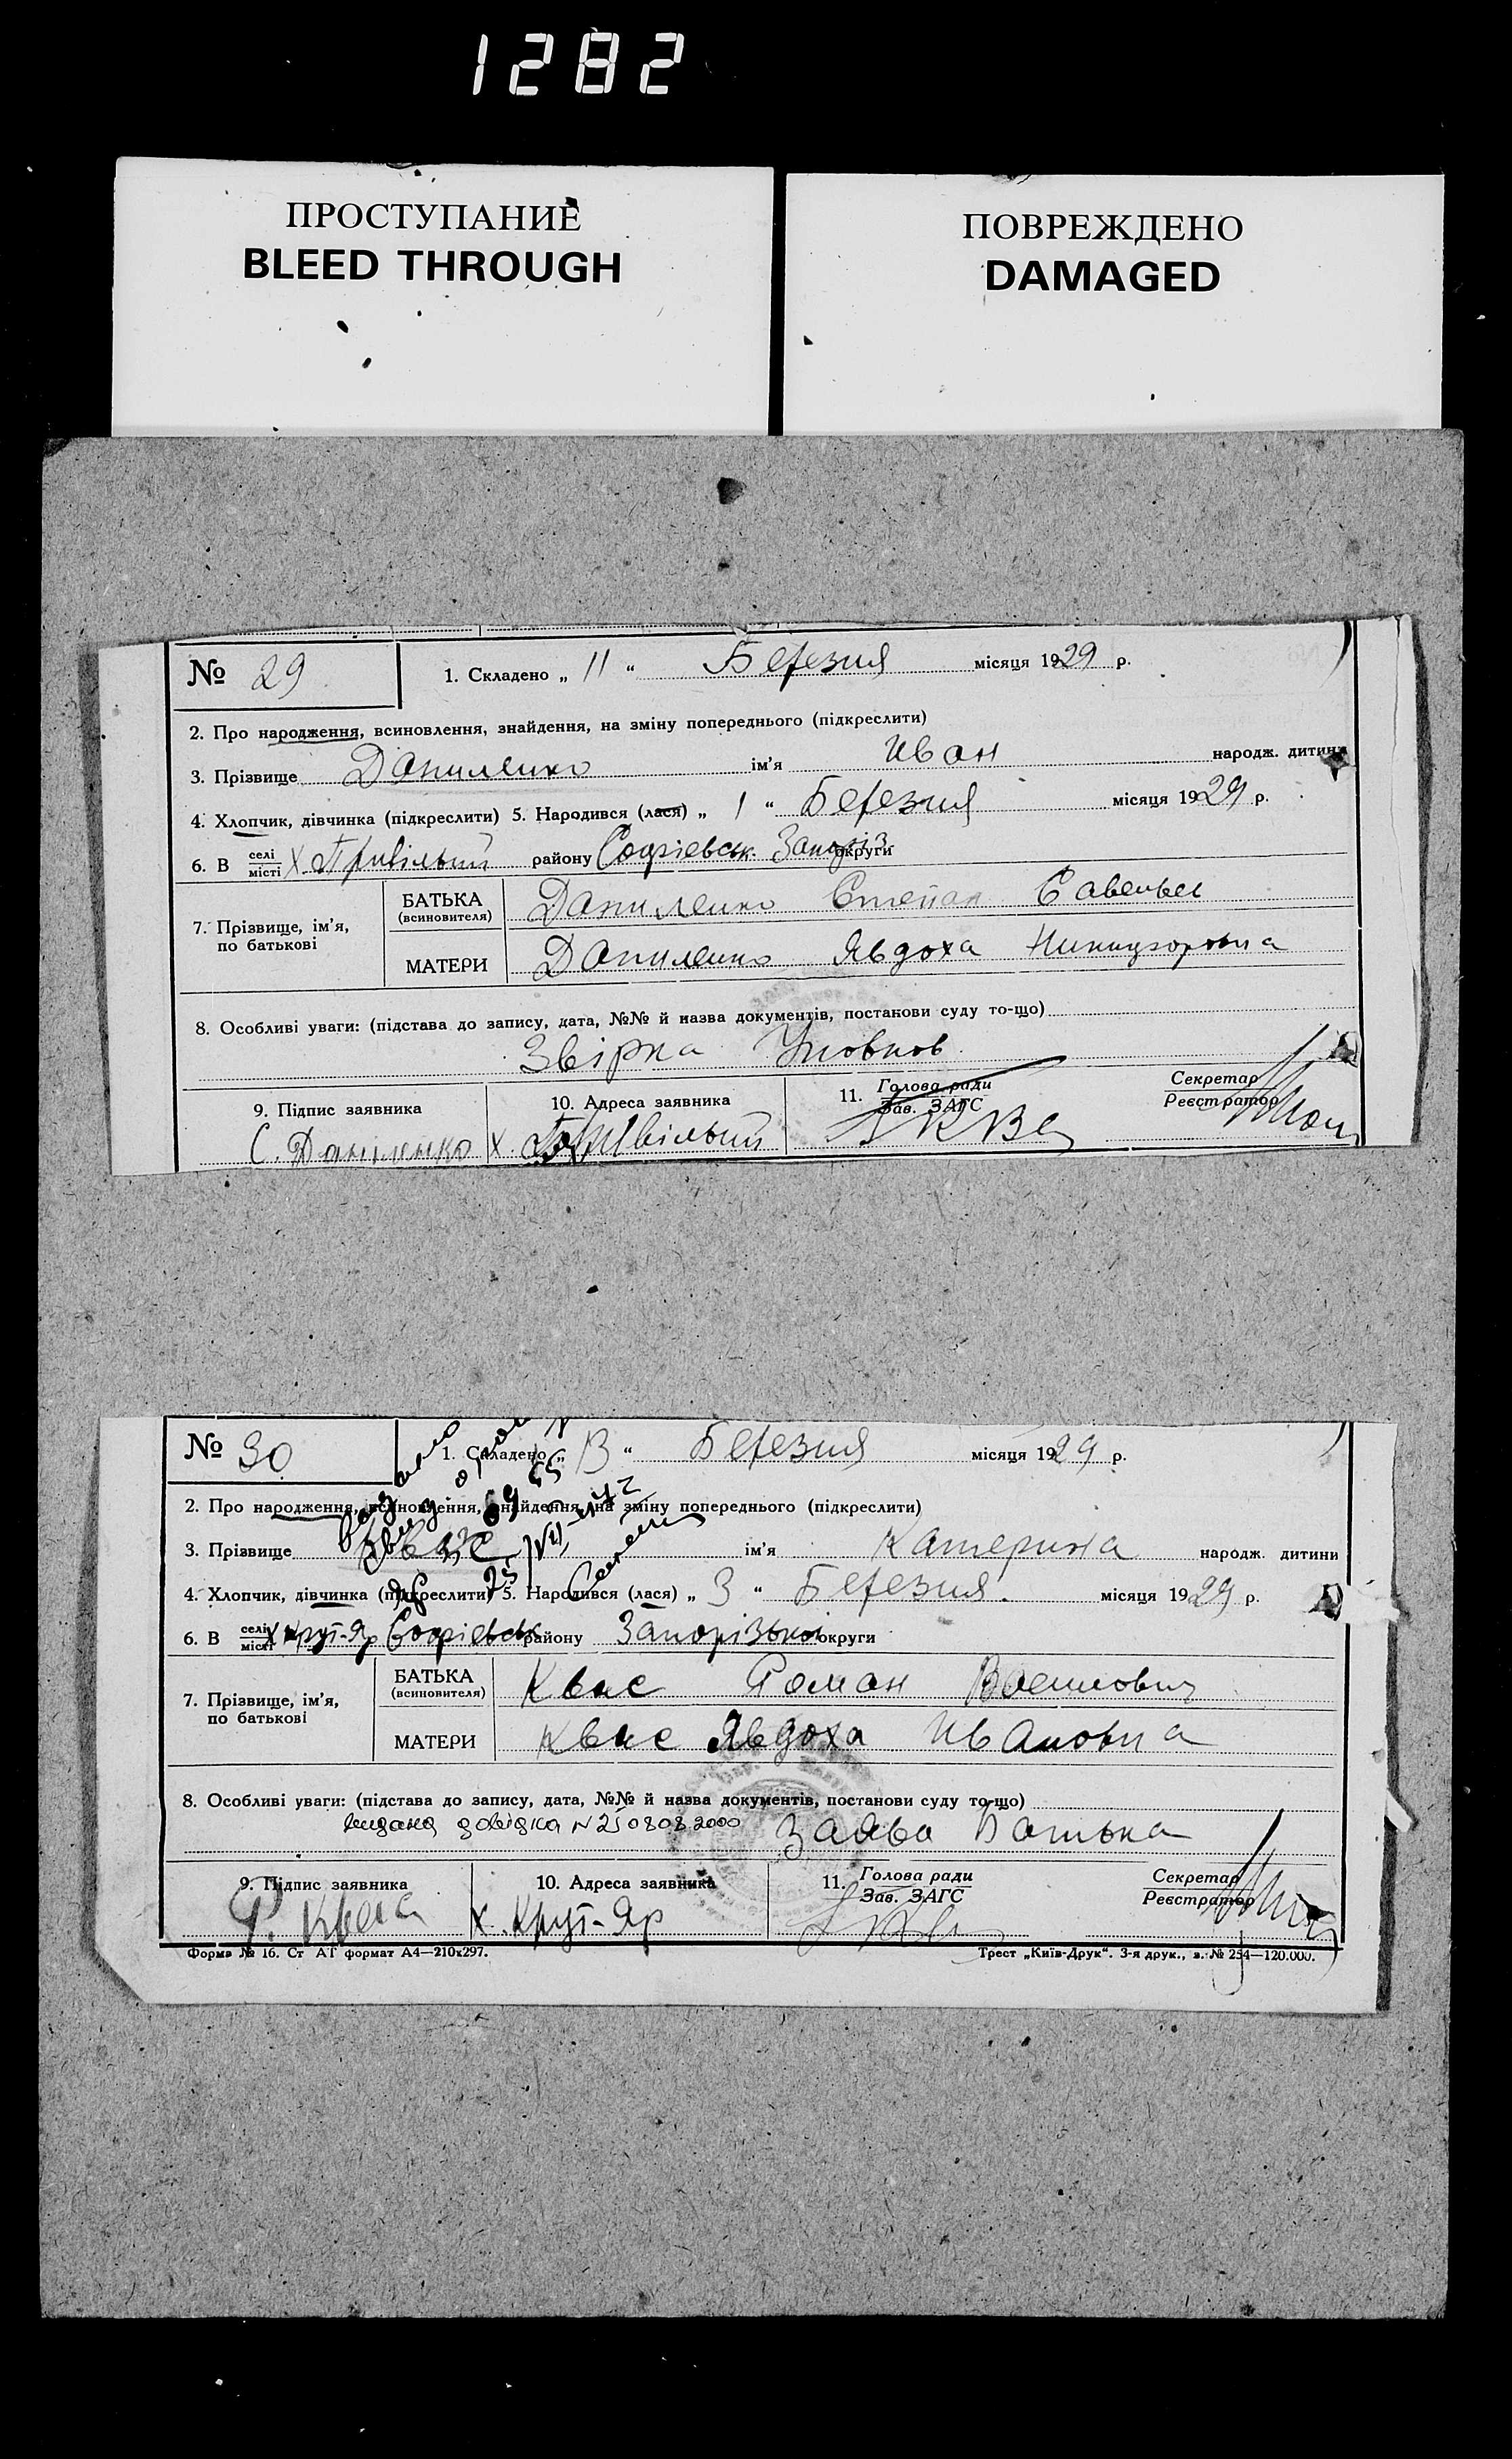 1282
ПРОСТУПАНИЕ
BLEED THROUGH
ПОВРЕЖДЕНО
DAMAGED
№ 29
1. Складено „ 11 “ Березня місяця 1929 р.
2. Про народження, всиновлення, знайдення, на зміну попереднього (підкреслити)
3. Прізвище Даниленко ім’я Иван народж. дитини
4. Хлопчик, дівчинка (підкреслити) 5. Народився (лася) „ 1 “ Березня місяця 1929 р.
6. В селі місті Х Привільний району Софіевськ. Запоріз. округи
7. Прізвище, ім’я, по батькові
БАТЬКА (всиновителя) Даниленко Степан Савельев
МАТЕРИ Даниленко Явдоха
8. Особливі уваги: (підстава до запису, дата, №№ й назва документів, постанови суду то-що)
Звірка
9. Підпис заявника 10. Адреса заявника 11. Голова ради Зав. ЗАГС Секретар Реєстратор
С. Даниленко х. Привільний
№ 30
1. Складено „ 13 “ Березня місяця 1929 р.
2. Про народження, всиновлення, знайдення, на зміну попереднього (підкреслити)
3. Прізвище Квас ім’я Катерина народж. дитини
4. Хлопчик, дівчинка (підкреслити) 5. Народився (лася) „ 3 “ Березня. місяця 1929 р.
6. В селі місті Х Крут-Яр Софіевськ району Запорізької округи
7. Прізвище, ім’я, по батькові
БАТЬКА (всиновителя) Квас Роман
МАТЕРИ Квас Явдоха Ивановна
8. Особливі уваги: (підстава до запису, дата, №№ й назва документів, постанови суду то-що)
видана довідка N 25 0808 2000 Заява Батька
9. Підпис заявника 10. Адреса заявника 11. Голова ради Зав. ЗАГС Секретар Реєстратор
Р. Квас х. Крут-Яр
Форма № 16. Ст АТ формат А4—210х297.
Трест „Київ-Друк“. 3-я друк., з. № 254—120.000.